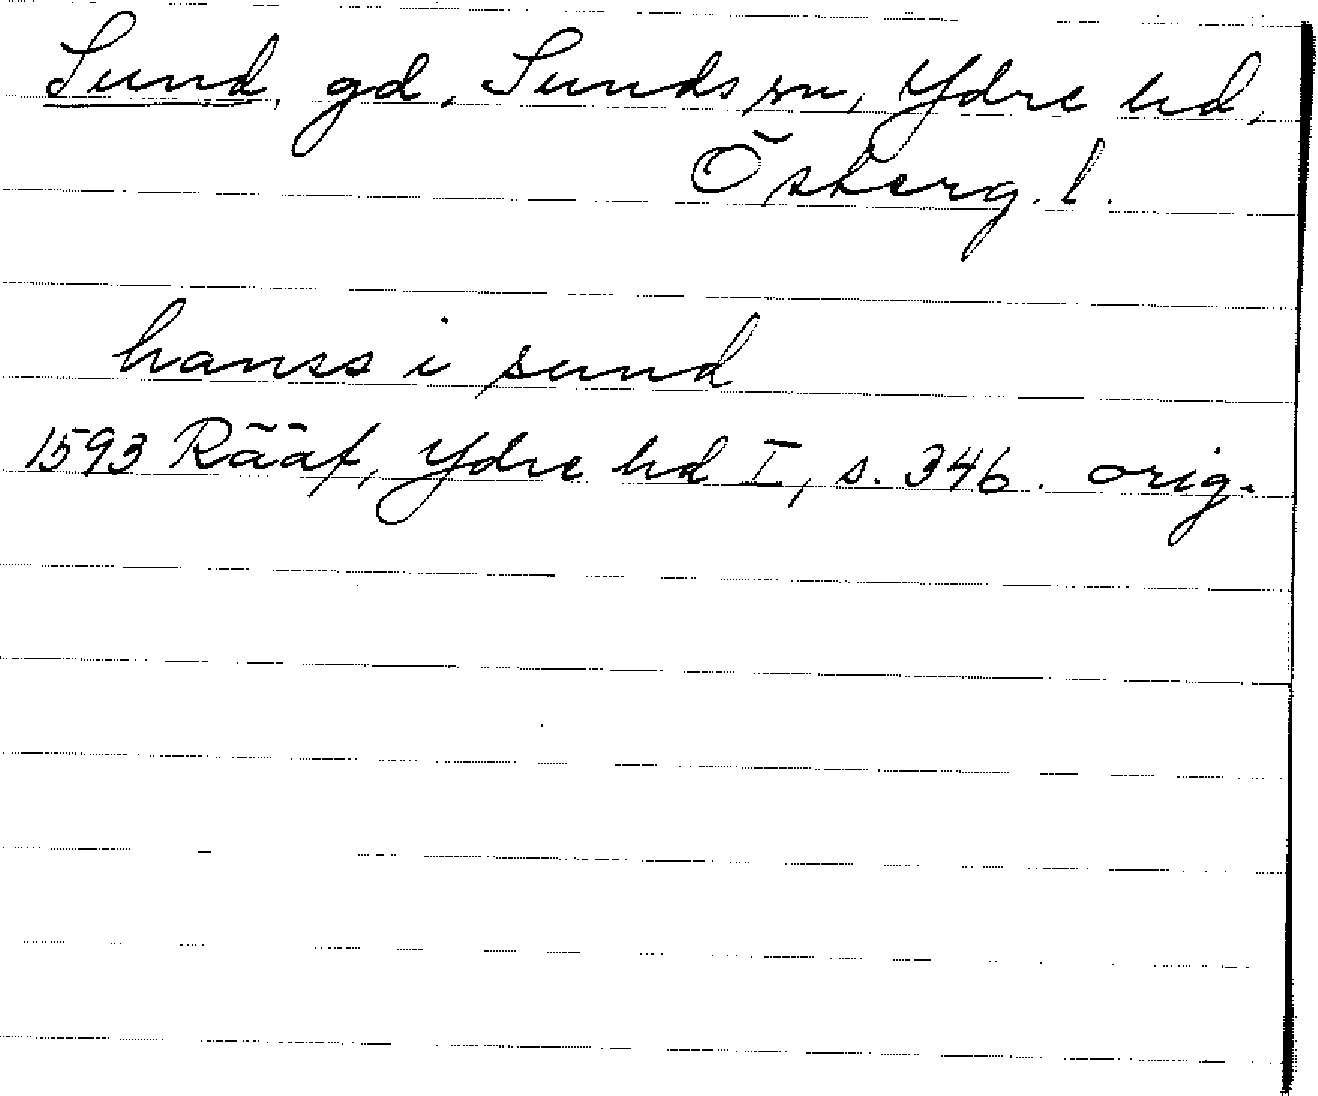 Sund, gd, Sunds sn, Ydre hd,
Österg. l.
hanss i sund
1593 Rääf, Ydre hd I, s. 346. orig.